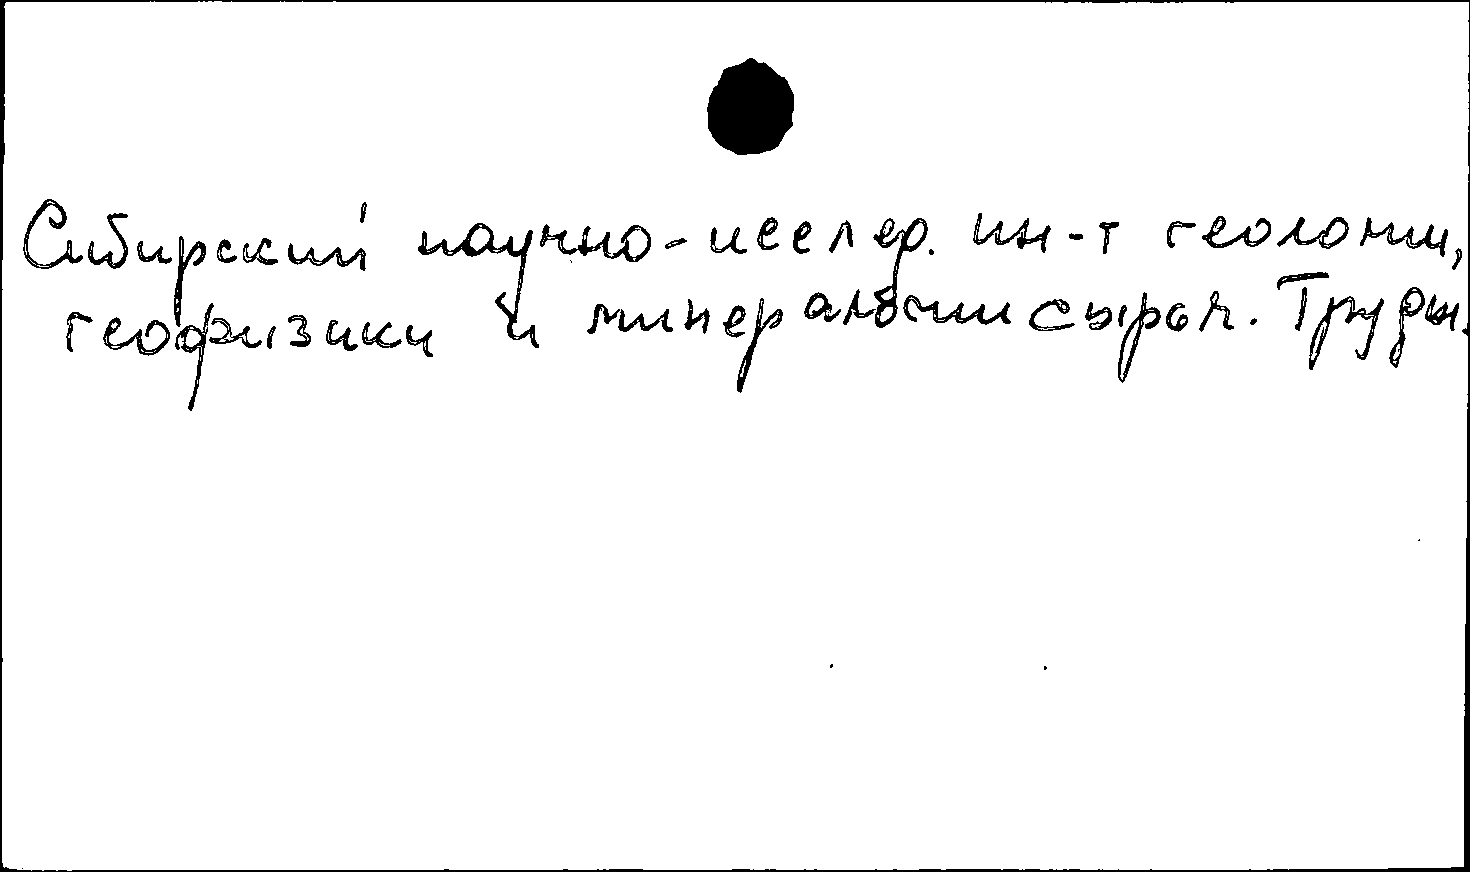 Сибирский научно-исслед. ин-т геологии,
геофизики и минерального сырья. Труды.